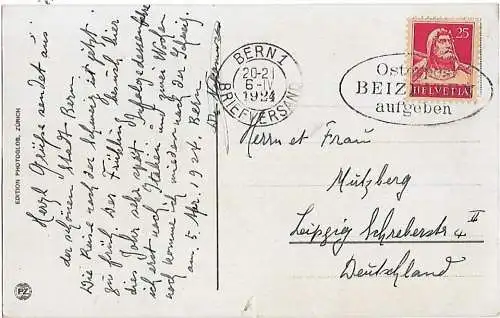 Herzl. Grüße sendet aus
der schönen Stadt Bern.
Die Reise nach der Schweiz ist jetzt
zu früh, der Frühling kommt hier
dies Jahr sehr spät.
ich erst nach Italien und zwei Wochen
noch komme ich wieder nach der Schweiz.
am 5. Apr. 1924. Bern
EDITION PHOTOGLOB, ZÜRICH
PZ
BERN 1
20-21
6-II
1924
BRIEFVERSAND
BEIZ
aufgeben
25
HELVETIA
Herrn et Frau
Mützberg
Leipzig Schreberstr 4 II
Deutschland